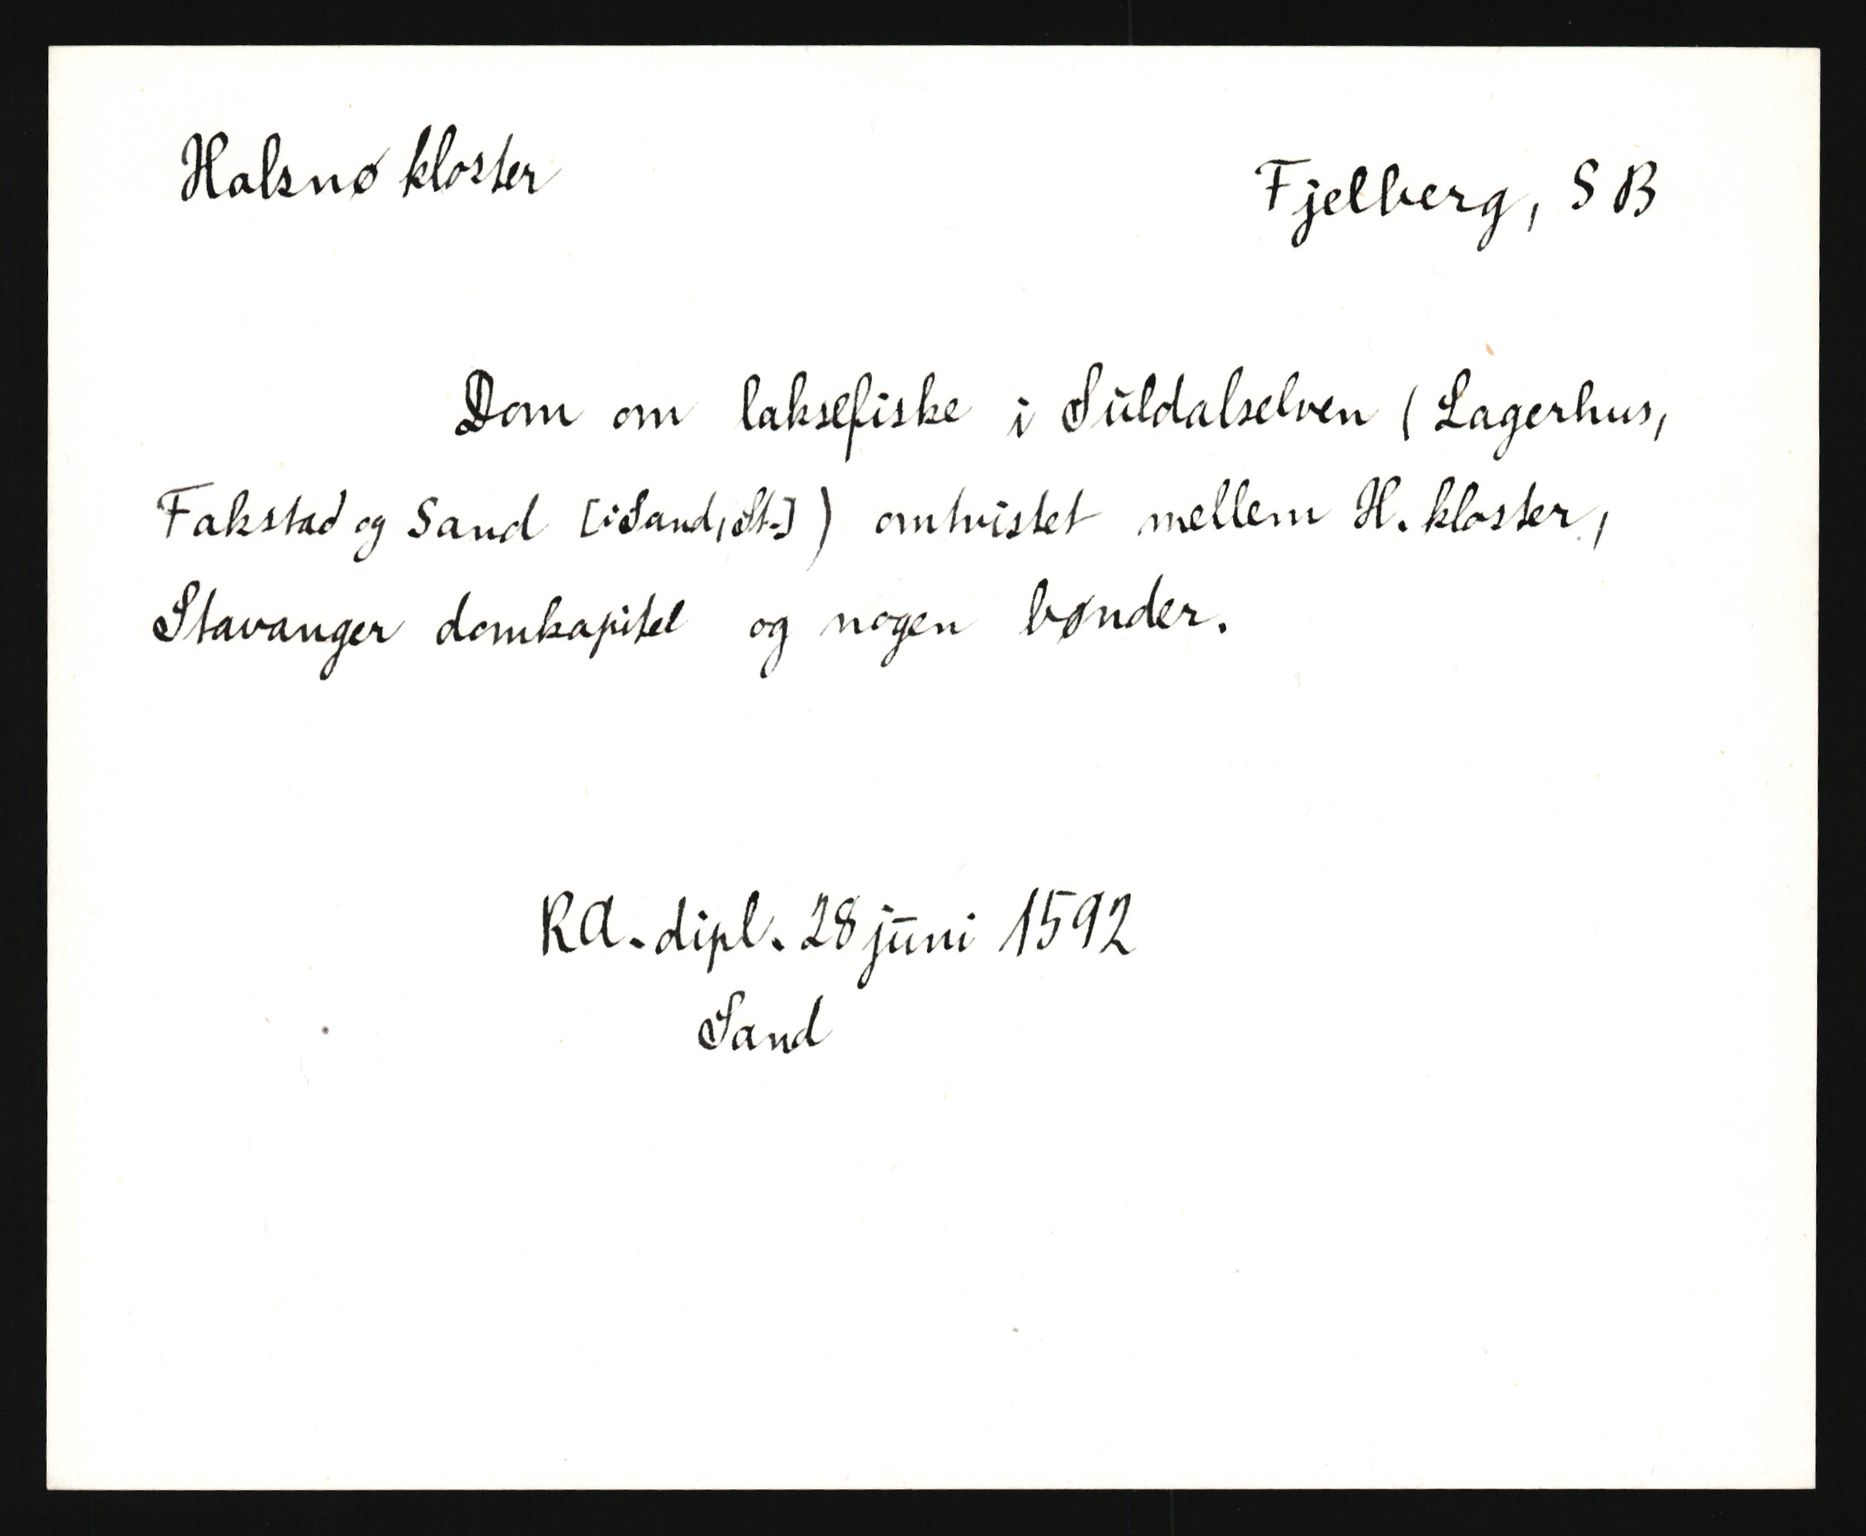 Halsnø kloster
Fjelberg, S B
Dom om laksefiske i Suldalselven (Lagerhus,
Fakstad og Sand [i Sand, St.]) omtvistet mellem H. kloster,
Stavanger domkapitel og nogen bønder.
RA. dipl. 28 juni 1592
Sand